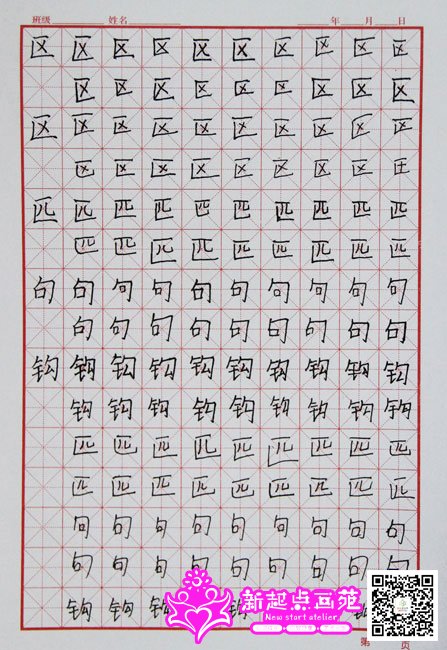 班级 姓名 年 月 日
区 区 区 区 区 区 区 区 区 区
区 区 区 区 区 区 区 区 区
区 区 区 区 区 区 区 区 区 区
区 区 区 区 区 区 区 区 区
匹 匹 匹 匹 匹 匹 匹 匹 匹 匹
匹 匹 匹 匹 匹 匹 匹 匹 匹
句 句 句 句 句 句 句 句 句 句
句 句 句 句 句 句 句 句 句
钩 钩 钩 钩 钩 钩 钩 钩 钩 钩
钩 钩 钩 钩 钩 钩 钩 钩 钩
匹 匹 匹 匹 匹 匹 匹 匹 匹
匹 匹 匹 匹 匹 匹 匹 匹 匹
句 句 句 句 句 句 句 句 句
句 句 句 句 句 句 句 句 句
钩 钩 钩 钩
新起点画苑
New start atelier
第 页